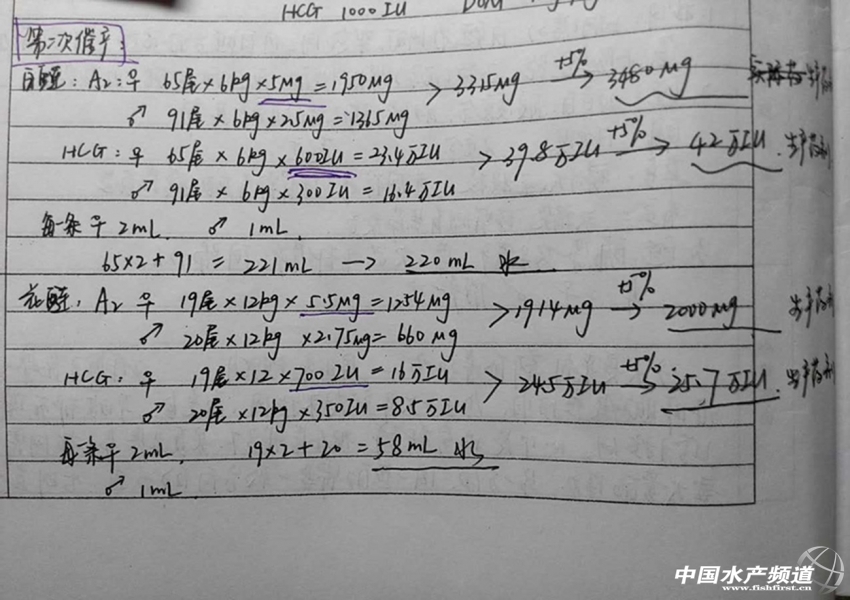 HCG 1000IU DOM
第二次催产:
白鲢: A2: ♀ 65尾×6kg×5Mg=1950Mg > 3315Mg +5% → 3480Mg
♂ 91尾×6kg×2.5Mg=1365Mg
HCG: ♀ 65尾×6kg×600IU=23.4万IU > 39.8万IU +5% → 42万IU. 生产药剂
♂ 91尾×6kg×300IU=16.4万IU
每条♀ 2mL. ♂ 1mL.
65×2+91 = 221mL → 220mL 水
花鲢: A2 ♀ 19尾×12kg×5.5Mg=1254Mg > 1914Mg +5% → 2000Mg 生产药剂
♂ 20尾×12kg×2.75Mg=660Mg
HCG: ♀ 19尾×12×700IU=16万IU > 24.5万IU +5% → 25.7万IU. 生产药剂
♂ 20尾×12kg×350IU=8.5万IU
每条♀ 2mL. 19×2+20=58mL 水
♂ 1mL.
中国水产频道
www.fishfirst.cn